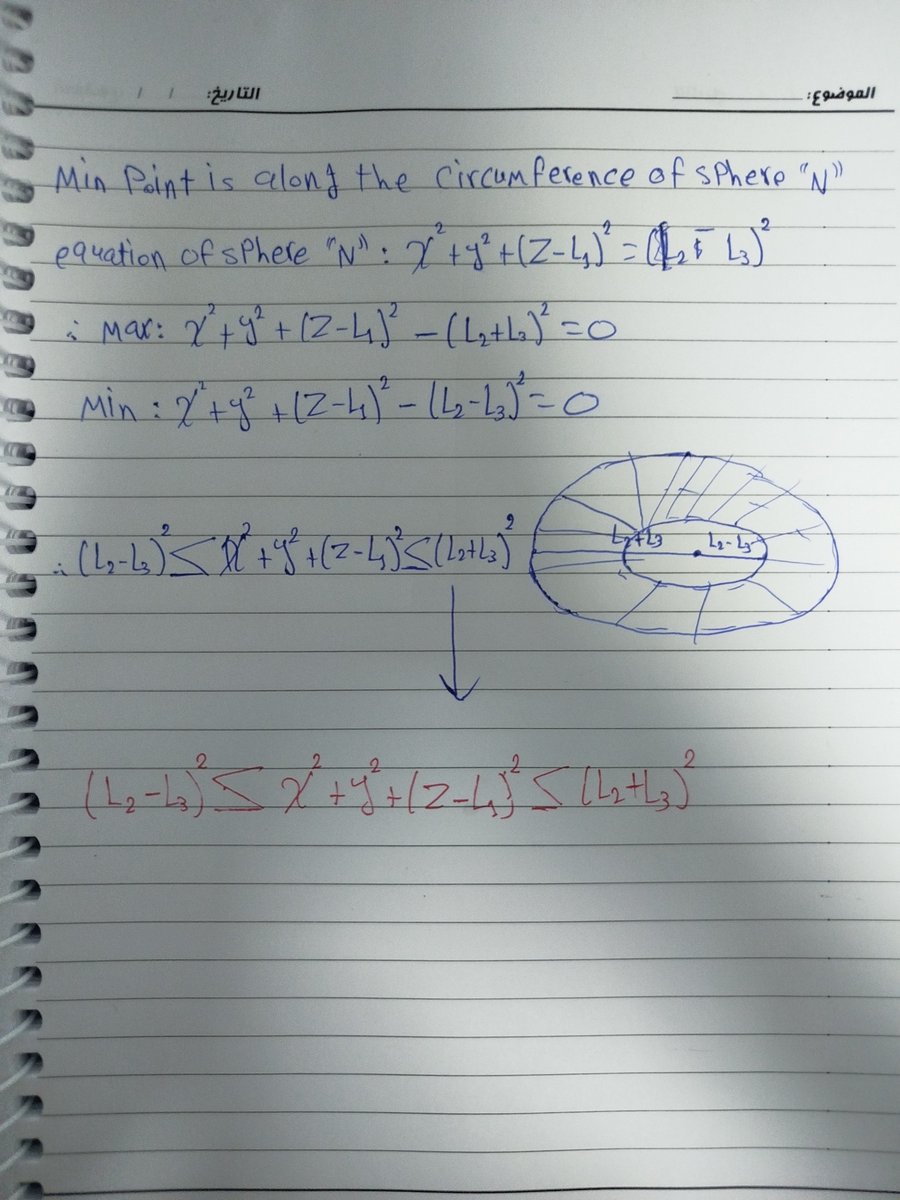 الموضوع: التاريخ: / /
Min Point is along the circumference of sphere "N"
equation of sphere "N" : x² + y² + (Z-L₁)² = (L₂ - L₃)²
∴ Max: x² + y² + (Z-L₁)² - (L₂+L₃)² = 0
Min : x² + y² + (Z-L₁)² - (L₂-L₃)² = 0
L₂+L₃ L₂-L₃
∴ (L₂-L₃)² ≤ x² + y² + (Z-L₁)² ≤ (L₂+L₃)²
(L₂-L₃)² ≤ x² + y² + (Z-L₁)² ≤ (L₂+L₃)²